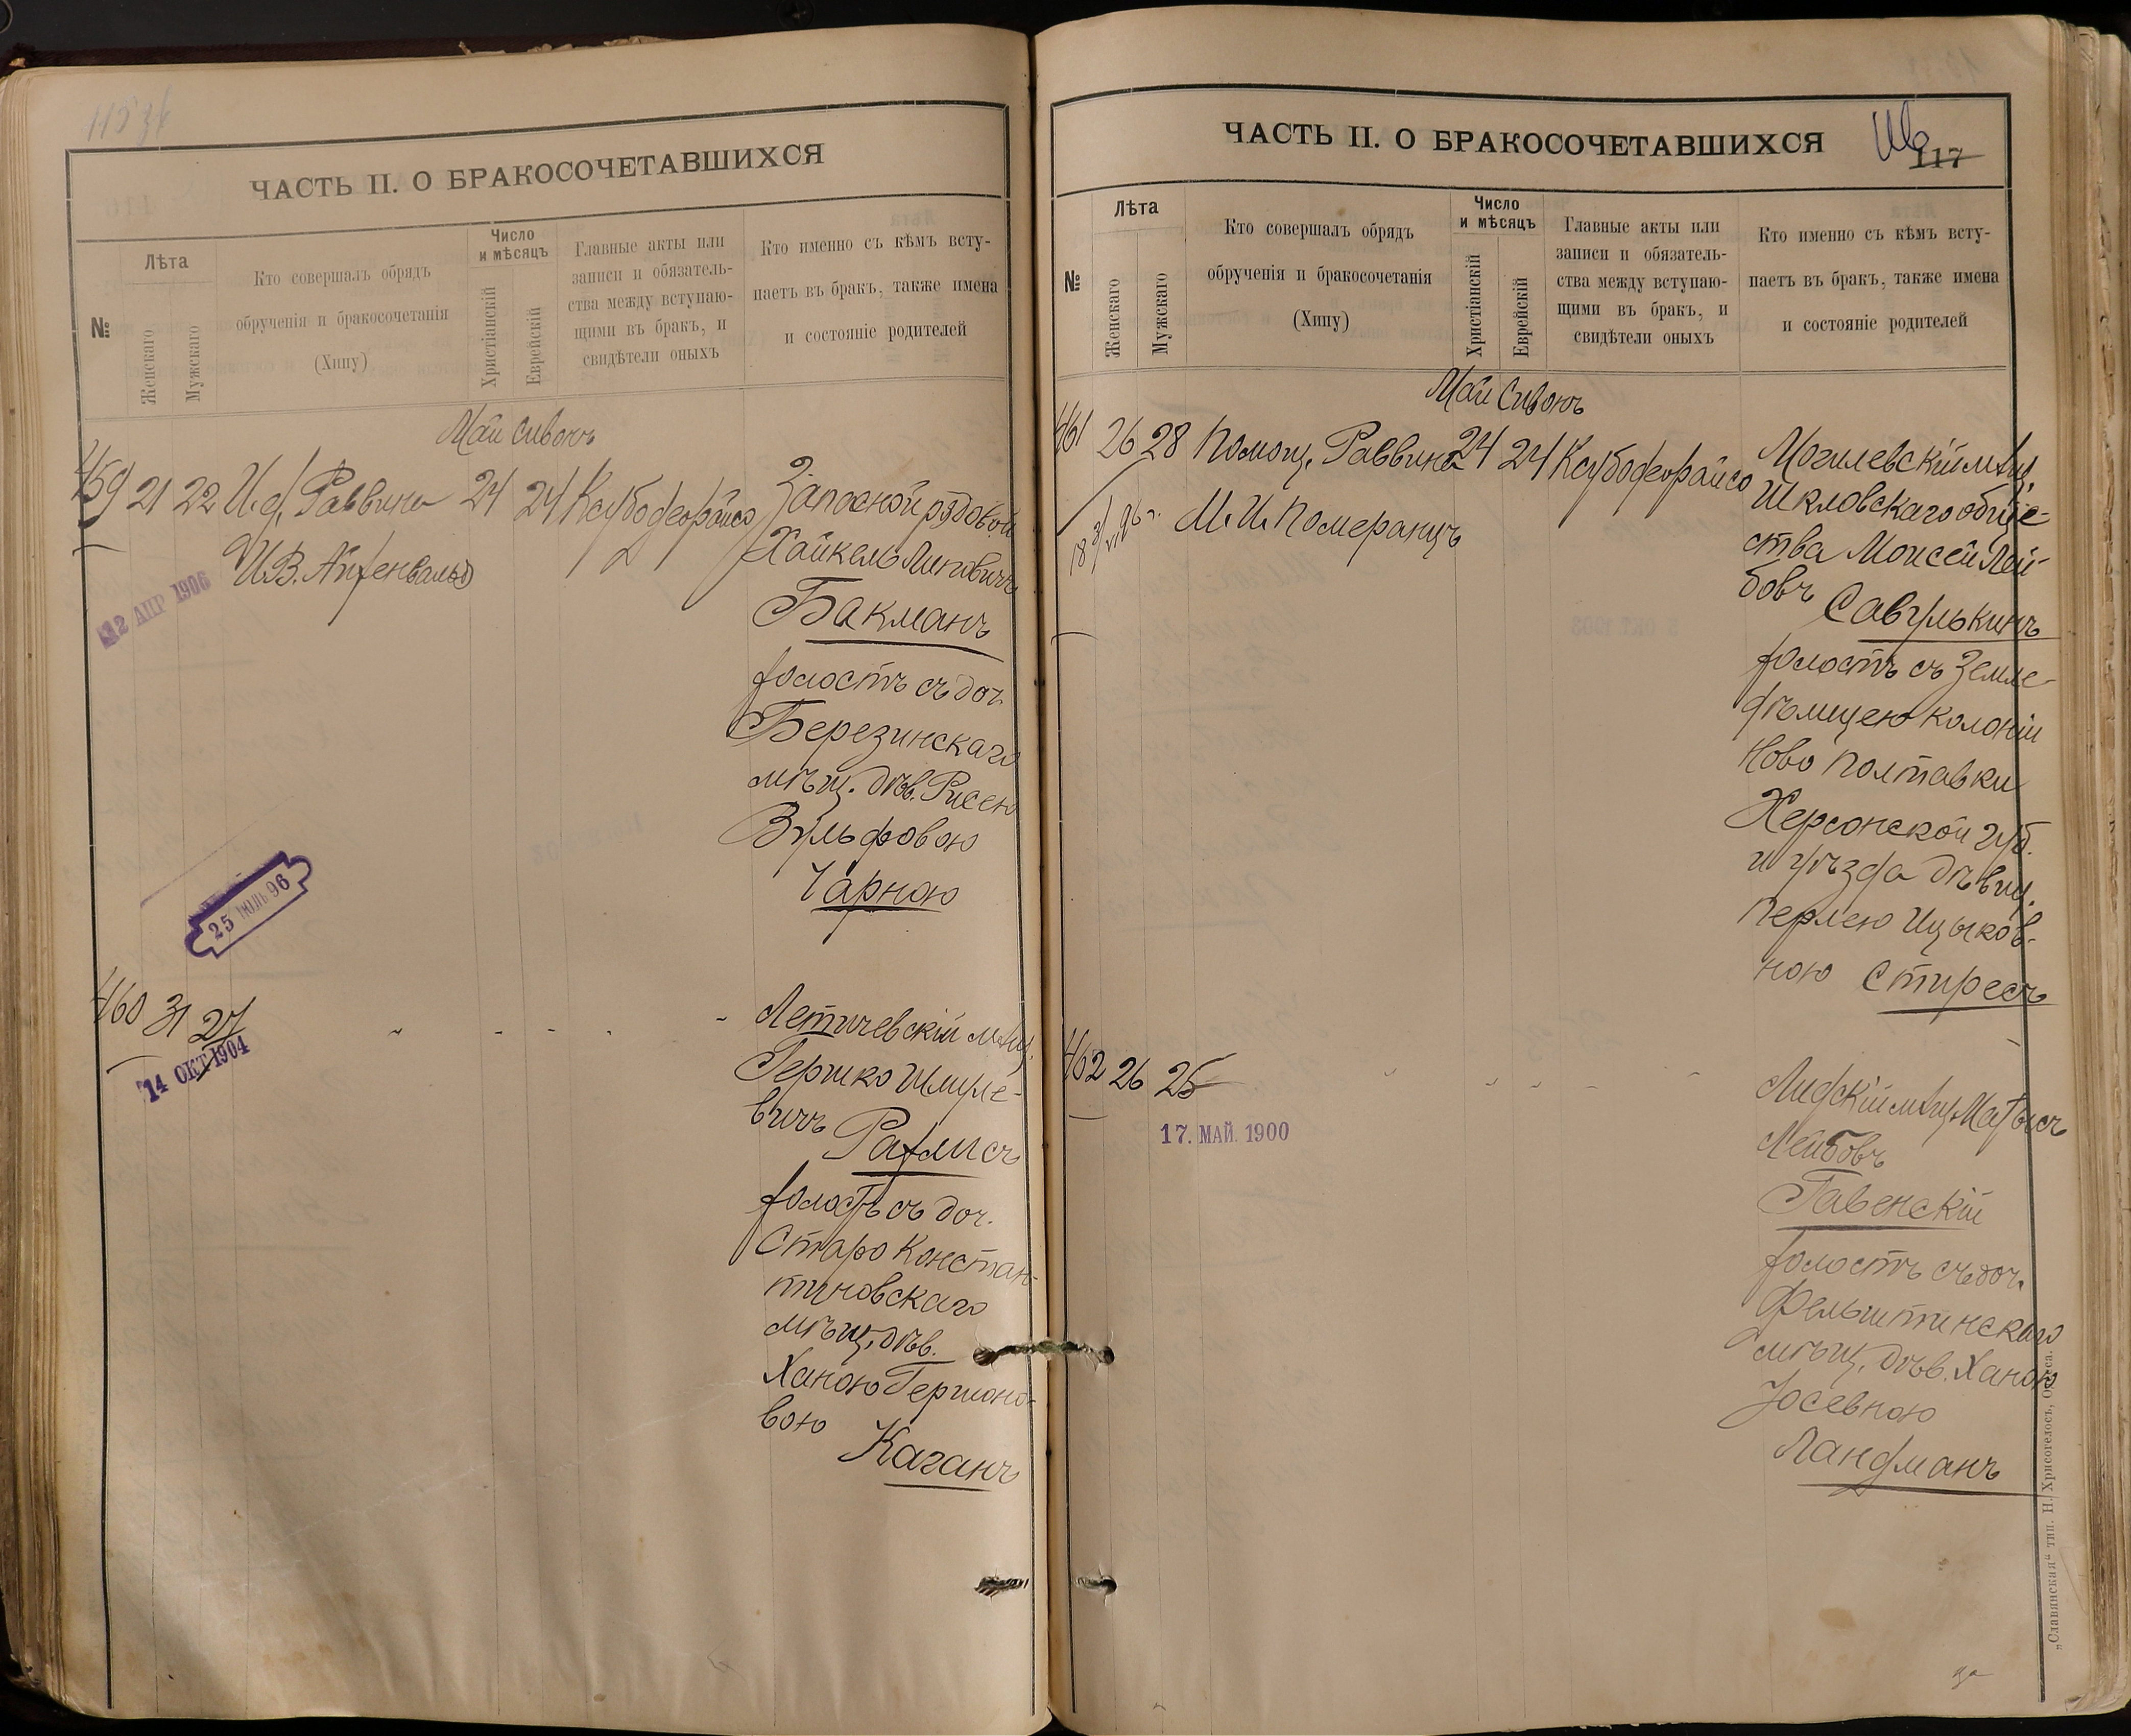 ЧАСТЬ II. О БРАКОСОЧЕТАВШИХСЯ
№
Лѣта
Женскаго
Мужскаго
Кто совершалъ обрядъ
обрученія и бракосочетанія
(Хипу)
Число
и мѣсяцъ
Христіанскій
Еврейскій
Главные акты или
записи и обязатель-
ства между вступаю-
щими въ бракъ, и
свидѣтели оныхъ
Кто именно съ кѣмъ всту-
паетъ въ бракъ, также имена
и состояніе родителей
Май Сивонъ
459 21 22 И. д. Раввина 24 24 Ксубодеорайсо Запасной рядовой
И.В. Айзенвальд Хайкель
12 АПР 1906
Бакманъ
холостъ съ доч.
Березинскаго
мѣщ. дѣв. Рисею
Вульфовою
Чарною
25 ІЮЛЬ 96
460 31 27 Летичевскій мѣщ.
14 ОКТ 1904
Гершко Шмуле-
вичъ
Рахлисъ
холостъ съ доч.
Старо Констан-
тиновскаго
мѣщ. дѣв.
Ханою Гершоно-
вою
Каганъ
ЧАСТЬ II. О БРАКОСОЧЕТАВШИХСЯ
116
117
№
Лѣта
Женскаго
Мужскаго
Кто совершалъ обрядъ
обрученія и бракосочетанія
(Хипу)
Число
и мѣсяцъ
Христіанскій
Еврейскій
Главные акты или
записи и обязатель-
ства между вступаю-
щими въ бракъ, и
свидѣтели оныхъ
Кто именно съ кѣмъ всту-
паетъ въ бракъ, также имена
и состояніе родителей
Май Сивонъ
461 26 28 Помощ. Раввина 24 24 Ксубодеорайсо Могилевскій мѣщ.
М. И. Померанцъ Шкловскаго обще-
ства Моисей Лей-
бовъ Савулькинъ
холостъ съ Земле-
дѣлицею колоніи
Ново Полтавки
Херсонской губ.
и уѣзда дѣвиц.
Перлею Ицыков-
ною Стиресъ
462 26 25 Лидскій мѣщ. Матысъ
17. МАЙ. 1900
Лейбовъ
Гавенскій
холостъ съ доч.
Фельштинскаго
мѣщ. дѣв. Ханою
Іосевною
Ландманъ
„Славянская" тип. Н. Хрисогелосъ, Одесса.